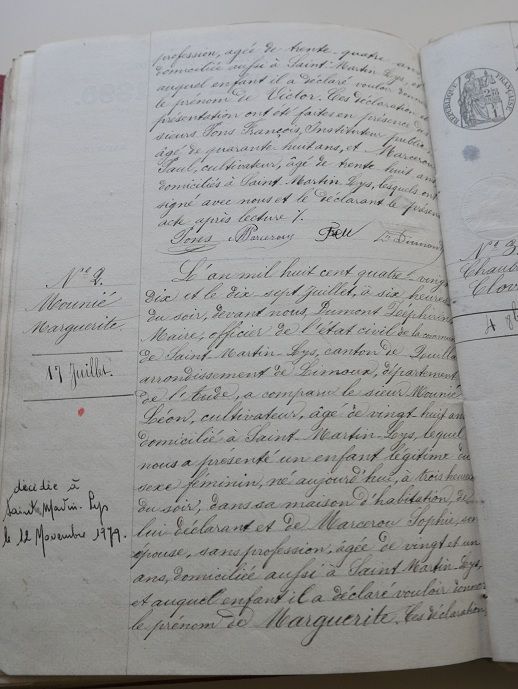 profession, agée de trente-quatre ans
domiciliée aussi à Saint-Martin-Lys, et
auquel enfant il a déclaré vouloir donner
le prénom de Victor. Ces déclaration et
présentation ont été faites en présence des
sieurs Pons François, Instituteur public
âgé de quarante huit ans, et Marcerou
Paul, cultivateur, âgé de trente huit ans
domiciliés à Saint Martin Lys, lesquels ont
signé avec nous et le déclarant le présent
acte après lecture /.
Pons Marcerou Dumont
N.º 2.
Mounié
Marguerite.
17 Juillet.
décédée à
Saint Martin-Lys
le 12 Novembre 1979.
L'an mil huit cent quatre-vingt
dix et le dix sept Juillet, à six heures
du soir, devant nous, Dumont Delphin
Maire, officier de l'état civil de la commune
de Saint-Martin-Lys, canton de Quillan
arrondissement de Limoux, département
de l'Aude, a comparu le sieur Mounié
Léon, cultivateur, âgé de vingt huit ans
domicilié à Saint-Martin-Lys, lequel
nous a présenté un enfant légitime du
sexe féminin, né aujourd'hui, à trois heures
du soir, dans sa maison d'habitation, de
lui déclarant et de Marcerou Sophie, son
épouse, sans profession, âgée de vingt et un
ans, domiciliée aussi à Saint Martin-Lys,
et auquel enfant il a déclaré vouloir donner
le prénom de Marguerite. Ces déclaration
RÉPUBLIQUE FRANÇAISE
N.º 3